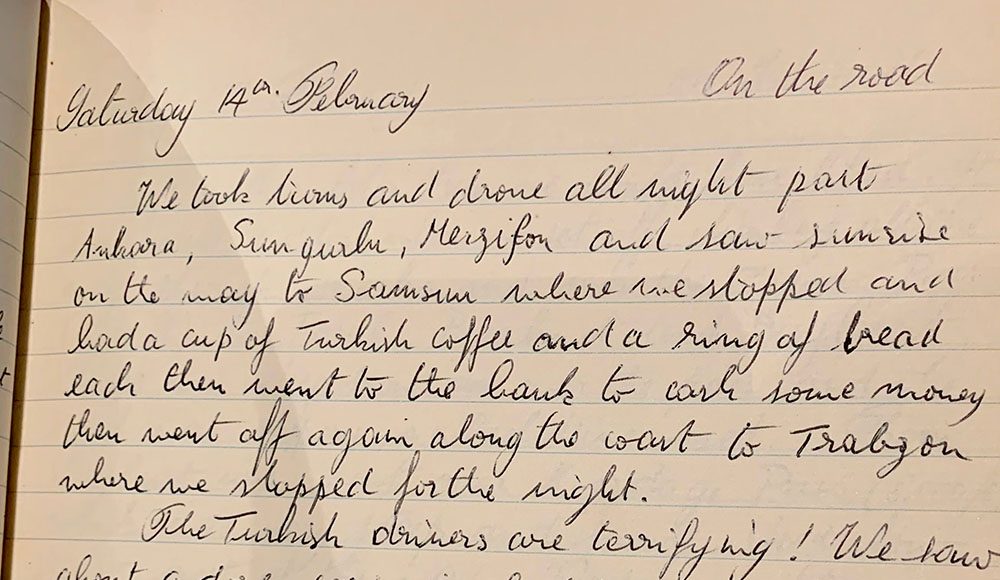 On the road
Saturday 14th. February
We took turns and drove all night past
Ankara, Sungurlu, Merzifon and saw sunrise
on the way to Samsun where we stopped and
had a cup of Turkish coffee and a ring of bread
each then went to the bank to cash some money
then went off again along the coast to Trabzon
where we stopped for the night.
The Turkish drivers are terrifying! We saw
about a